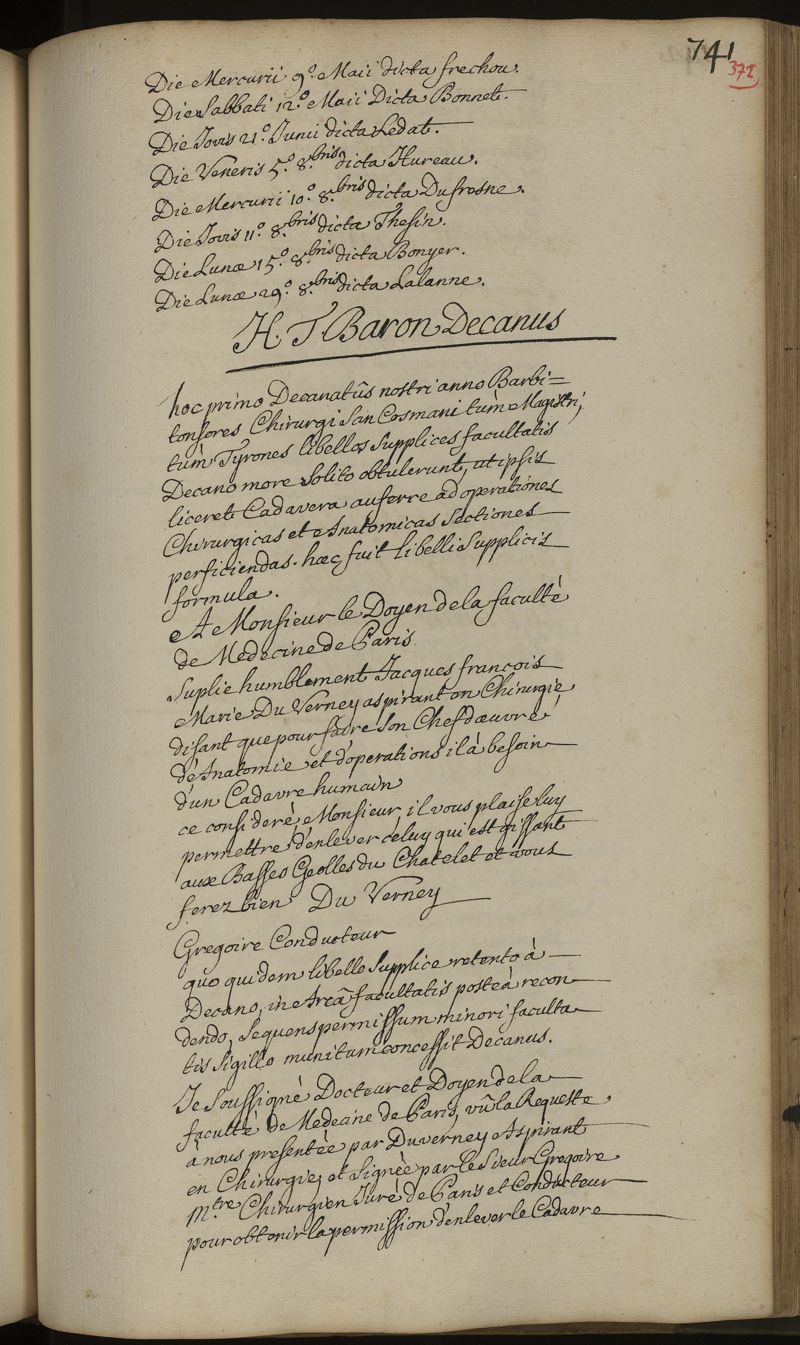 741
372
Die Mercurii 9.° Maii dicta frechou.
Die Sabbati 12.° Maii Dicta Bonnet.
Die Jovis 21.° Junii dicta Ledat.
Die Veneris 5.° 8.bris dicta Hureau.
Die Mercurii 10.° 8.bris dicta Dufresne.
Die Jovis 11.° 8.bris dicta Thesin.
Die Lunæ 15.° 8.bris dicta Bonyer.
Die Lunæ 29.° 8.bris dicta Lalanne.
H. T. Baron Decanus
hoc primo Decanatûs nostri anno Barbi=
tonsores Chirurgi San Cosmani tùm Magistri,
tùm Tyrones libellos Supplices facultatis
Decano more Solito obtulerunt, ut ipsis
liceret Cadavera auferre ad operationes
Chirurgicas et Anatomicas Sectiones
perficiendas. hæc fuit libelli Supplicis
formula.
A Monsieur le Doyen de la faculté
de Medecine de Paris
Suplie humblement Jacques françois
Marie Du Verney aspirant en Chirurgie,
disant que pour faire Son Chef d'œuvre
d'Anatomie et d'operations il à besoin
d'un Cadavre humain
ce consideré, Monsieur, il vous plaise luy
permettre d'enlever céluy qui est gissant
aux Basses Geolles du Chatelet et vous
ferez bien Du Verney
Gregoire Conducteur
quo quidem libello Supplice retento à
Decano, in Arcâ facultatis posteà recon
dendo, Sequens permissum minori faculta
tis Sigillo munitum concessit Decanus.
Je Soussigné Docteur et Doyen de la
faculté de Medecine de Paris, vû la Requeste
à nous presentée par Duverney Aspirant
en Chirurgie, et Signée par le Sieur Gregoire
M.tre Chirurgien Juré de Paris et Conducteur
pour obtenir la permission d'enlever le Cadavre